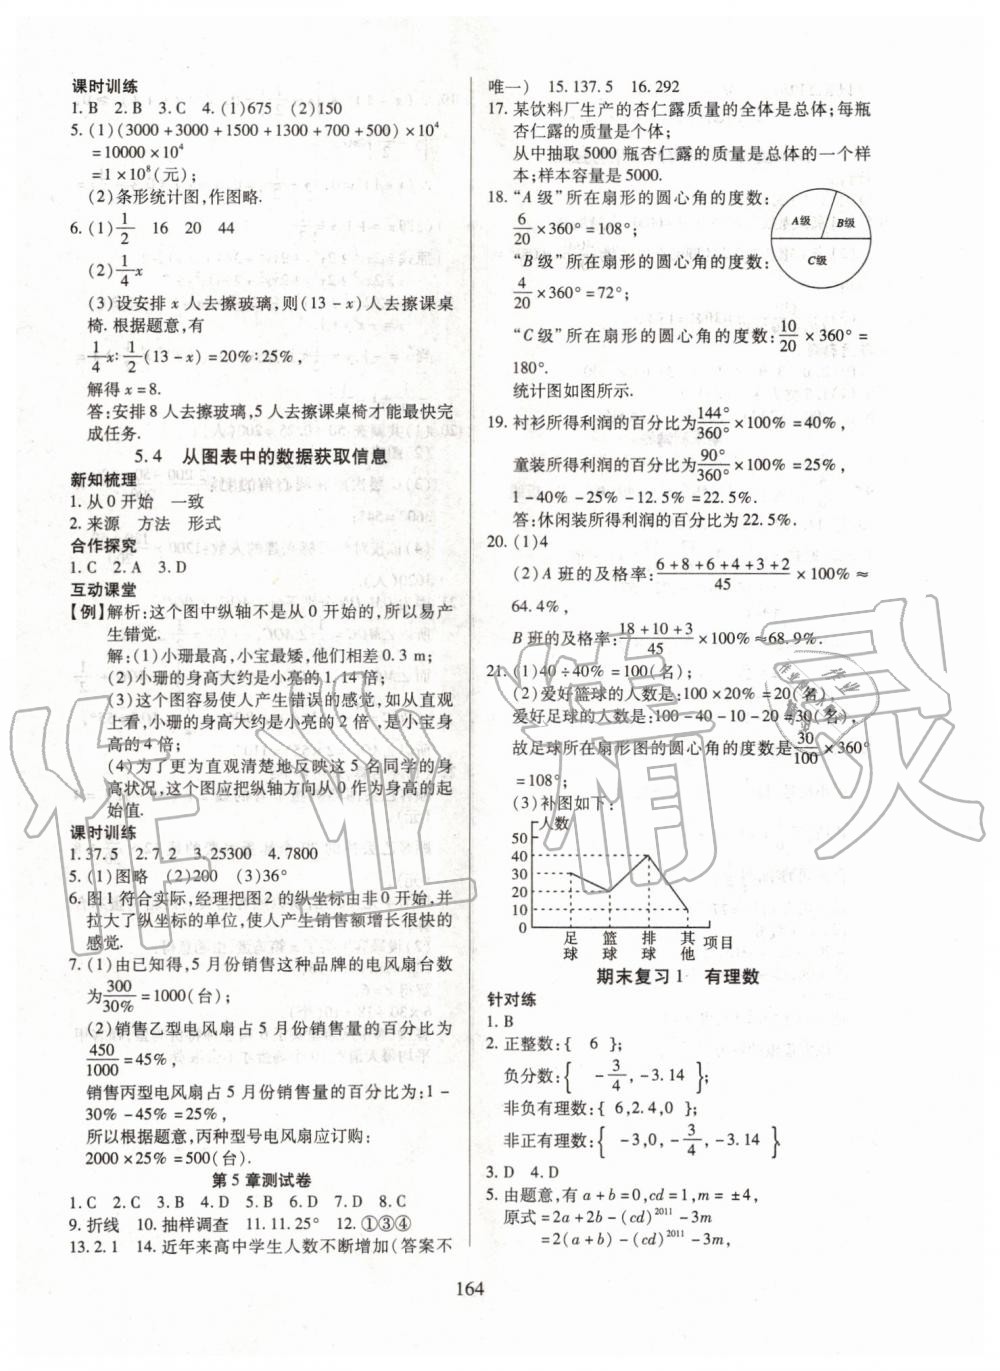 课时训练
1. B　2. B　3. C　4. (1)675　(2)150
5. (1)(3000+3000+1500+1300+700+500)×10⁴
=10000×10⁴
=1×10⁸(元);
(2)条形统计图,作图略.
6. (1)1/2　16　20　44
(2)1/4x
(3)设安排 x 人去擦玻璃,则(13-x)人去擦课桌
椅. 根据题意,有
1/4x:1/2(13-x)=20%:25%,
解得 x=8.
答:安排 8 人去擦玻璃,5 人去擦课桌椅才能最快完
成任务.
5.4　从图表中的数据获取信息
新知梳理
1. 从 0 开始　一致
2. 来源　方法　形式
合作探究
1. C　2. A　3. D
互动课堂
【例】解析:这个图中纵轴不是从 0 开始的,所以易产
生错觉.
解:(1)小珊最高,小宝最矮,他们相差0.3 m;
(2)小珊的身高大约是小亮的 1.14 倍;
(3)这个图容易使人产生错误的感觉,如从直观
上看,小珊的身高大约是小亮的 2 倍,是小宝身
高的 4 倍;
(4)为了更为直观清楚地反映这 5 名同学的身
高状况,这个图应把纵轴方向从 0 作为身高的起
始值.
课时训练
1. 37.5　2. 7.2　3. 25300　4. 7800
5. (1)图略　(2)200　(3)36°
6. 图 1 符合实际,经理把图 2 的纵坐标由非 0 开始,并
拉大了纵坐标的单位,使人产生销售额增长很快的
感觉.
7. (1)由已知得,5 月份销售这种品牌的电风扇台数
为300/30%=1000(台);
(2)销售乙型电风扇占 5 月份销售量的百分比为
450/1000=45%,
销售丙型电风扇占 5 月份销售量的百分比为:1-
30%-45%=25%,
所以根据题意,丙种型号电风扇应订购:
2000×25%=500(台).
第 5 章测试卷
1. C　2. C　3. B　4. D　5. B　6. D　7. D　8. C
9. 折线　10. 抽样调查　11. 11.25°　12. ①③④
13. 2.1　14. 近年来高中学生人数不断增加(答案不
唯一)　15. 137.5　16. 292
17. 某饮料厂生产的杏仁露质量的全体是总体;每瓶
杏仁露的质量是个体;
从中抽取 5000 瓶杏仁露的质量是总体的一个样
本;样本容量是 5000.
18. “A 级”所在扇形的圆心角的度数:
6/20×360°=108°;
“B 级”所在扇形的圆心角的度数:
4/20×360°=72°;
A级
B级
C级
“C 级”所在扇形的圆心角的度数:10/20×360°=
180°.
统计图如图所示.
19. 衬衫所得利润的百分比为144°/360°×100%=40%,
童装所得利润的百分比为90°/360°×100%=25%,
1-40%-25%-12.5%=22.5%.
答:休闲装所得利润的百分比为 22.5%.
20. (1)4
(2)A 班的及格率:(6+8+6+4+3+2)/45×100%≈
64.4%,
B 班的及格率:(18+10+3)/45×100%≈68.9%.
21. (1)40÷40%=100(名);
(2)爱好篮球的人数是:100×20%=20(名),
爱好足球的人数是:100-40-10-20=30(名),
故足球所在扇形图的圆心角的度数是30/100×360°
=108°;
(3)补图如下:
人数
50
40
30
20
10
0
足球　篮球　排球　其他　项目
期末复习 1　有理数
针对练
1. B
2. 正整数:{ 6 };
负分数:{ -3/4,-3.14 };
非负有理数:{ 6,2.4,0 };
非正有理数:{ -3,0,-3/4,-3.14 }
3. D　4. D
5. 由题意,有 a+b=0,cd=1,m=±4,
原式=2a+2b-(cd)²⁰¹¹-3m
=2(a+b)-(cd)²⁰¹¹-3m,
164
作业精灵